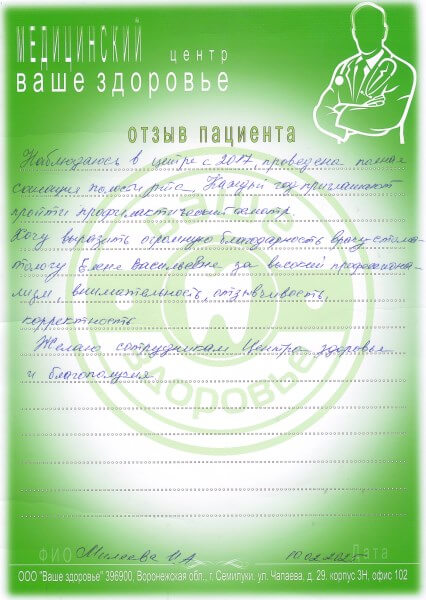 МЕДИЦИНСКИЙ центр
ваше здоровье
отзыв пациента
Наблюдаюсь в центре с 2017, проведена полная
санация полости рта. Каждый год приглашают
пройти профилактический осмотр
Хочу выразить огромную благодарность врачу-стома-
тологу Елене Васильевне за высокий профессиона-
лизм, внимательность, отзывчивость,
корректность
Желаю сотрудникам Центра здоровья
и благополучия
ВАШЕ
ЗДОРОВЬЕ
ФИО И.А. Дата
ООО "Ваше здоровье" 396900, Воронежская обл., г. Семилуки. ул. Чапаева, д. 29. корпус 3Н, офис 102